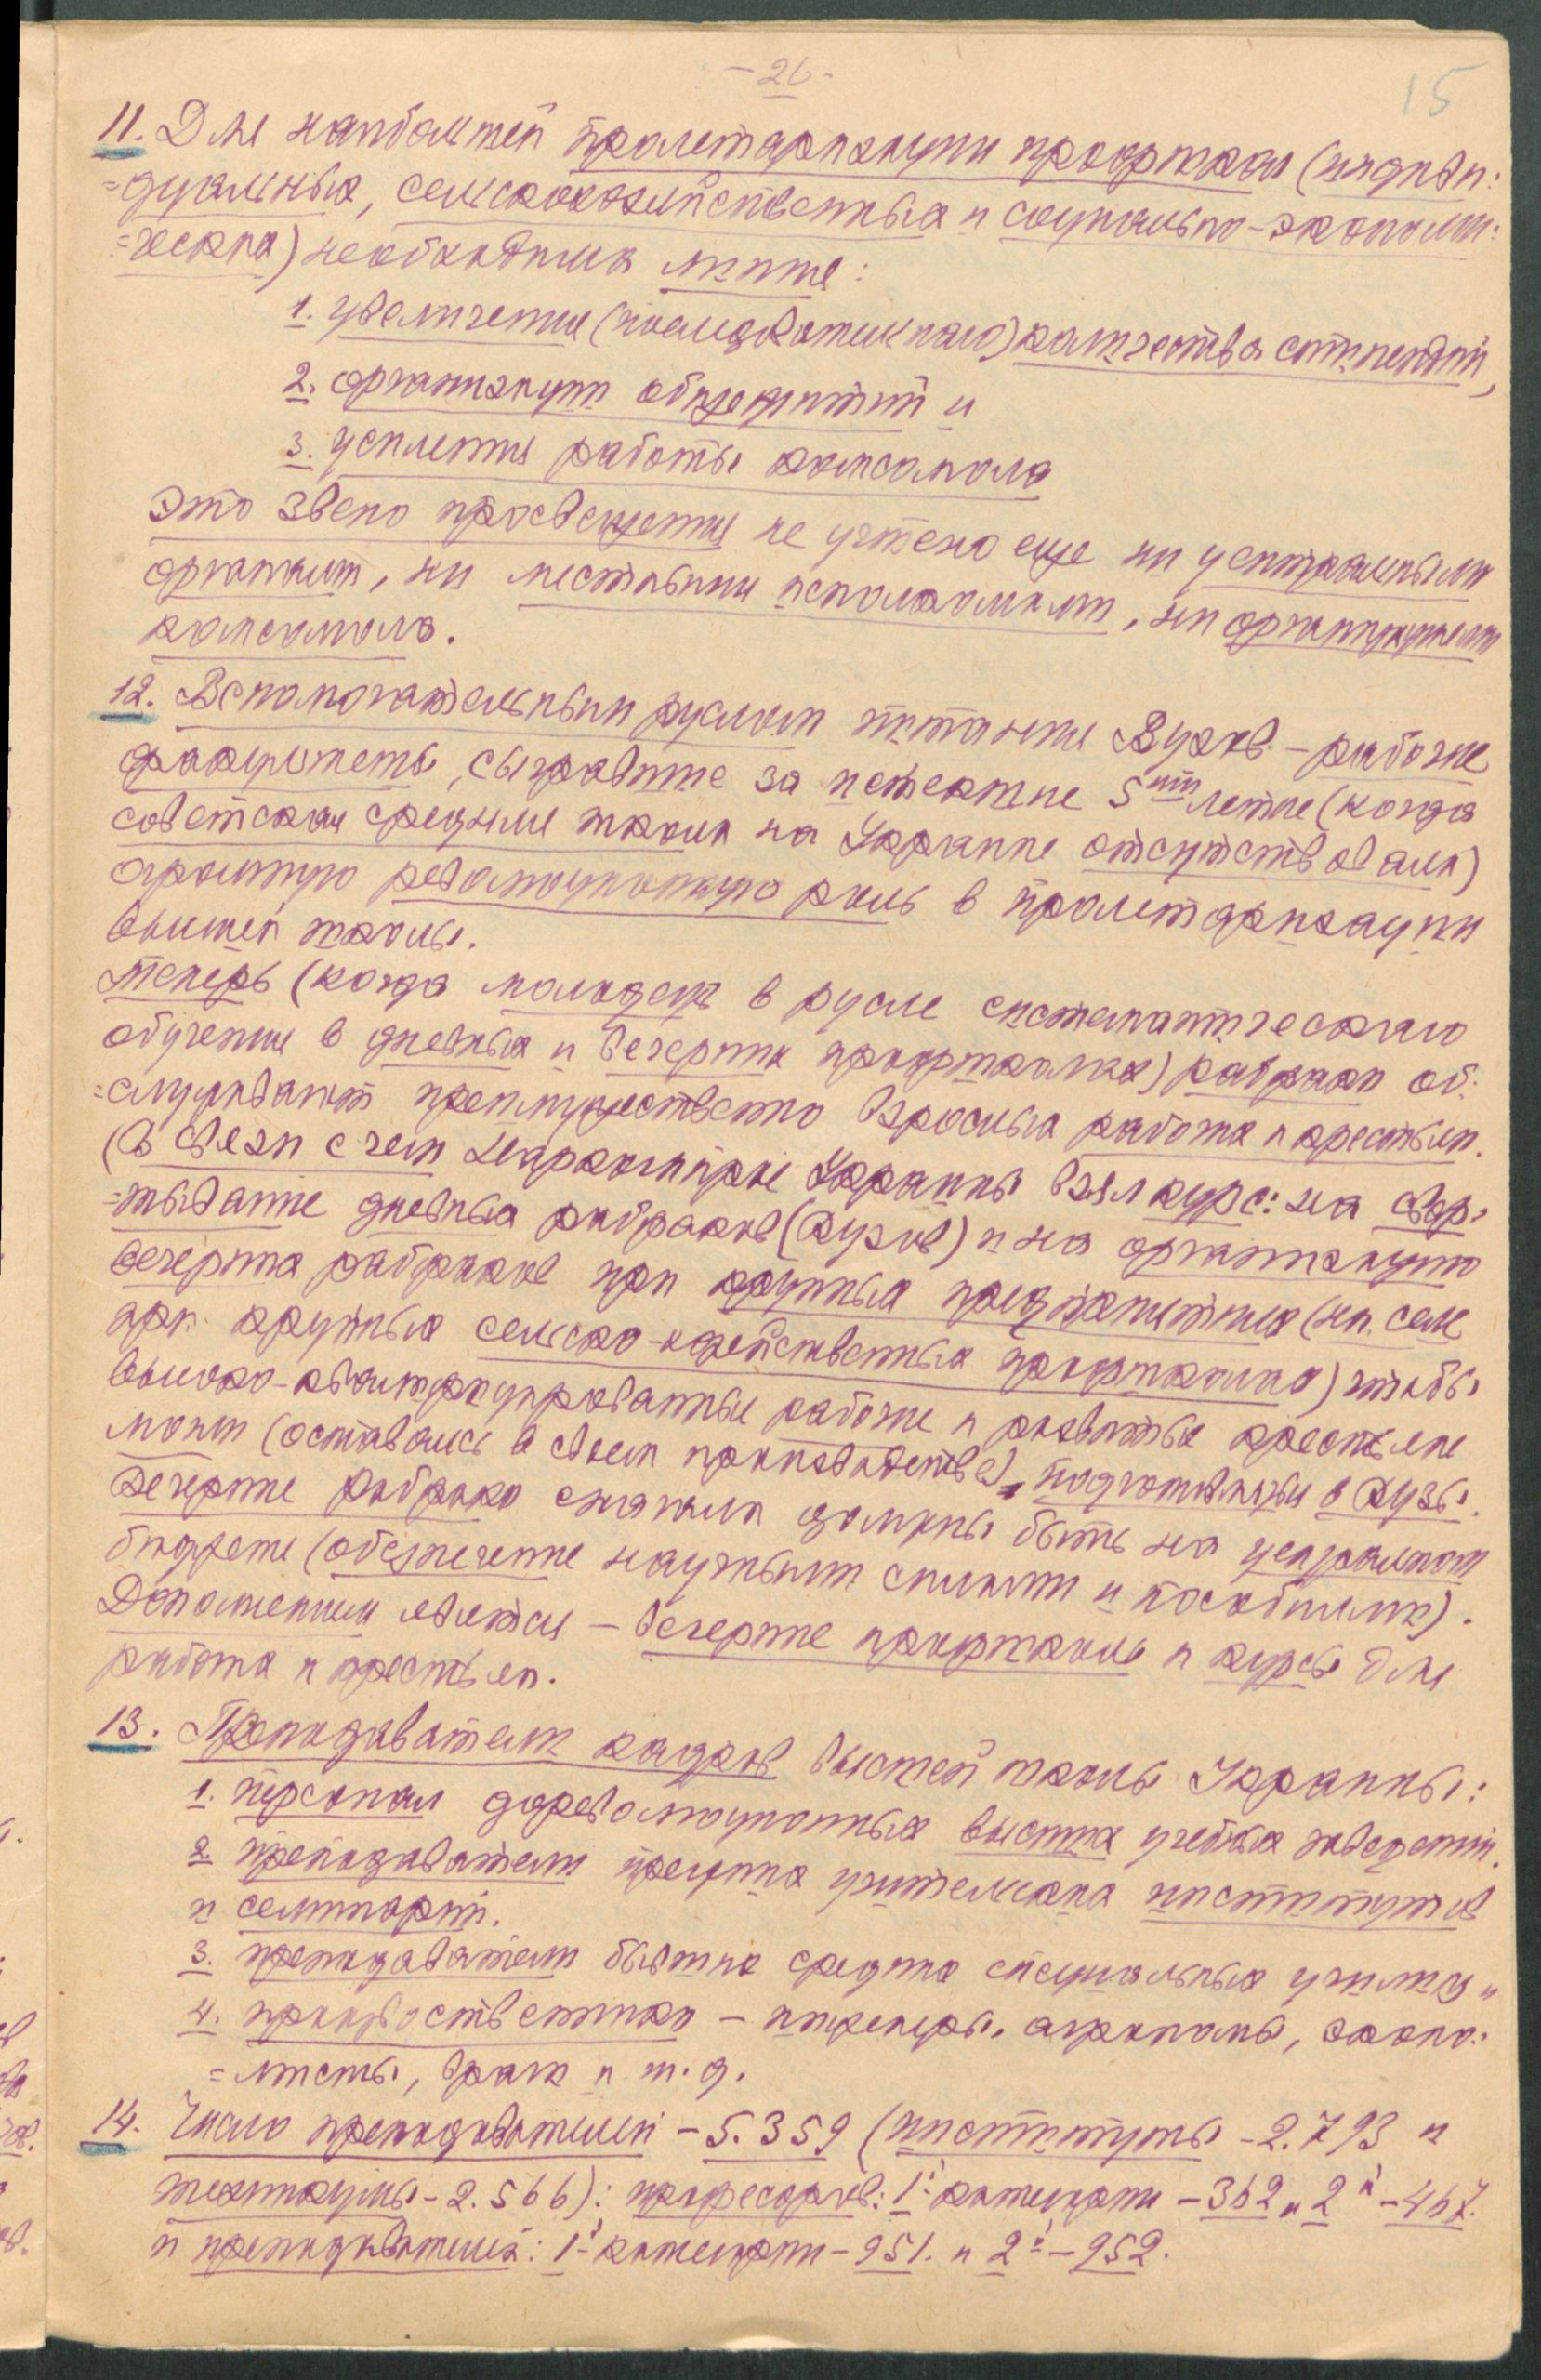 - 26 -
15
11. Для наибольшей пролетаризации профшкол (индиви:
=дуальных, сельскохозяйственных и социально-экономи:
=ческих) необходимы лишь:
1. увеличение количества стипендий,
2. организации общежитий и
3. усиления работы комсомола
Это звено просвещения не учтено еще ни центральными
органами, ни местными исполкомами, ни организациями
комсомола.
12. Вспомогательным руслом питания Вузов. – рабочие
факультеты, сыгравшие за истекшие 5ти летие (когда
советская средняя школа на Украине отсутствовала)
огромную революционную роль в пролетаризации
высшей школы.
Теперь (когда молодежь в русле систематического
обучения в дневных и вечерних профшколах) рабфаки об:
=служивают преимущественно взрослых рабочих и крестьян.
(В связи с чем Наркомпрос Украины взял курс: на свер:
=тывание дневных рабфаков (Вузов) и на организацию
вечерних рабфаков при крупных предприятиях (на селе
при крупных сельско-хозяйственных профшколах) чтобы
высоко-квалифицированные рабочие и развитые крестьяне
могли (оставаясь в своем производстве) подготовляться в Вузы.
Вечерние рабфаки сначала должны быть на центральном
бюджете (обеспечение научными силами и пособиями).
Дополнением являются – вечерние профшколы и курсы для
рабочих и крестьян.
13. Преподаватели кадров высшей школы Украины:
1. персонал дореволюционных высших учебных заведений.
2. преподаватели прежних учительских институтов
и семинарий.
3. преподаватели бывших средних специальных училищ и
4. производственники – инженеры, агрономы, эконо:
=мисты, врачи и т. д.
14. Число преподавателей – 5.359 (институты – 2.793 и
техникумы – 2.566): професоров: 1й категории – 362 и 2й – 467.
и преподавателей: 1й категории – 951. и 2й – 952.